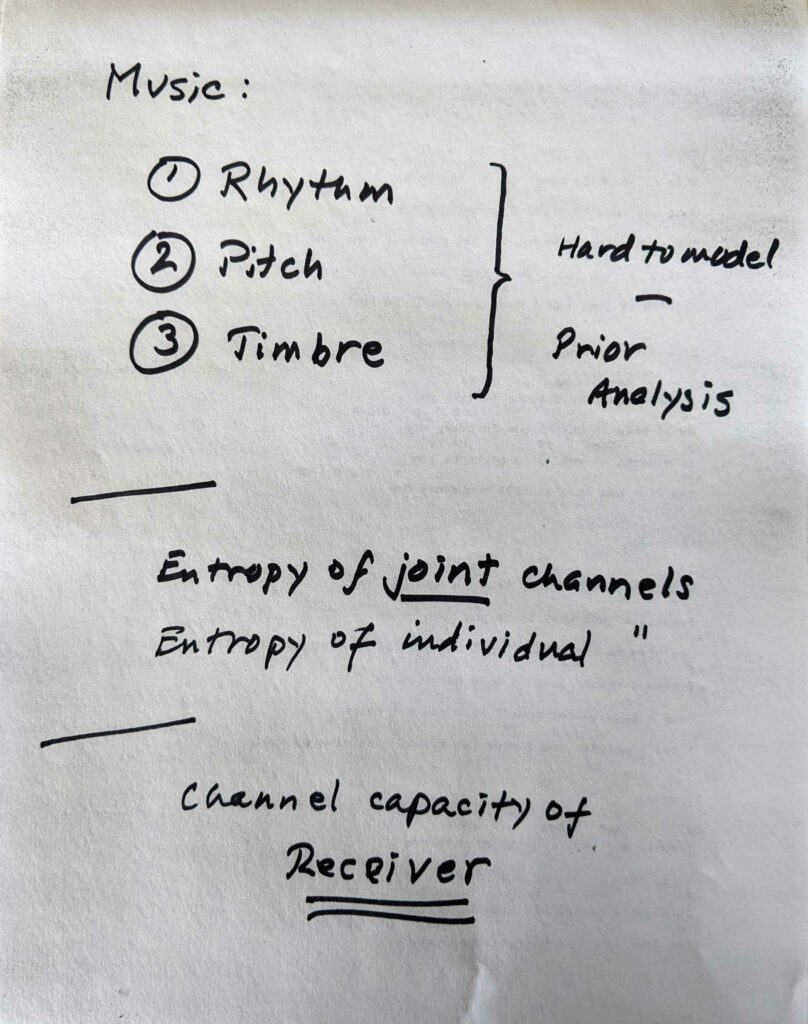 Music:
① Rhythm
② Pitch
③ Timbre
Hard to model
—
Prior
Analysis
Entropy of joint channels
Entropy of individual "
Channel capacity of
Receiver